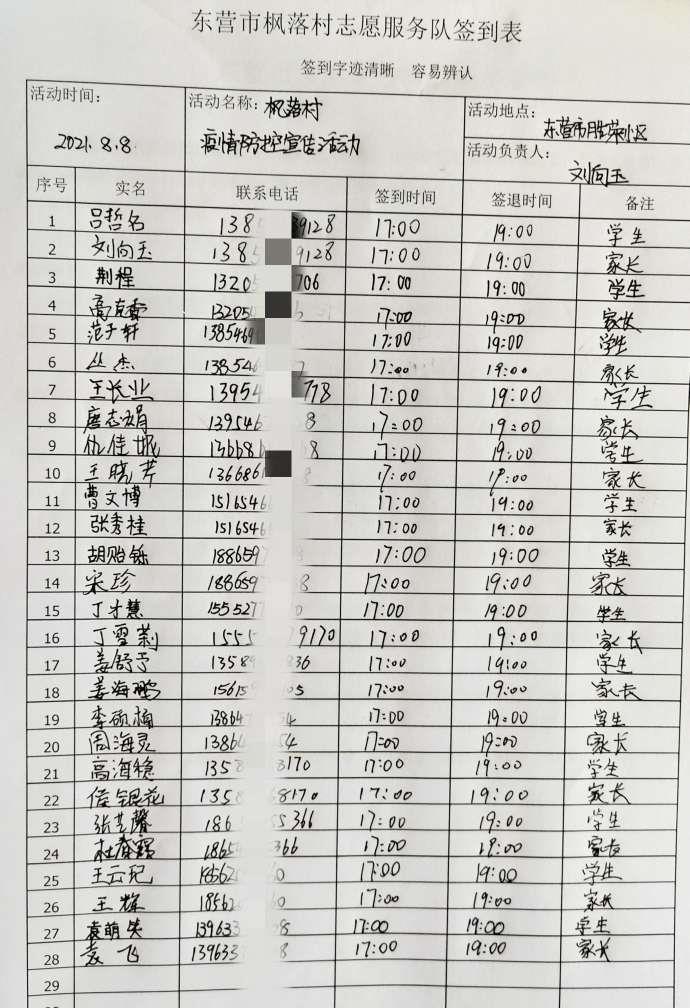 东营市枫落村志愿服务队签到表
签到字迹清晰 容易辨认
活动时间: 2021.8.8 活动名称: 枫落村疫情防控宣传活动 活动地点: 东营市胜采小区
活动负责人: 刘向玉
序号 实名 联系电话 签到时间 签退时间 备注
1 吕哲名 138 9128 17:00 19:00 学生
2 刘向玉 1385 9128 17:00 19:00 家长
3 荆程 13205 706 17:00 19:00 学生
4 高京香 13205 17:00 19:00 家长
5 范子轩 1385469 17:00 19:00 学生
6 丛杰 138546 17:00 19:00 家长
7 王长业 13954 778 17:00 19:00 学生
8 唐志娟 139546 8 17:00 19:00 家长
9 仇佳妮 13668 8 17:00 19:00 学生
10 王晓芹 136686 17:00 19:00 家长
11 曹文博 1516546 17:00 19:00 学生
12 张秀桂 1516546 17:00 19:00 家长
13 胡贻铄 188659 17:00 19:00 学生
14 宋珍 188659 8 17:00 19:00 家长
15 丁才慧 155527 0 17:00 19:00 学生
16 丁雪莉 1555 9170 17:00 19:00 家长
17 姜舒予 1358 836 17:00 19:00 学生
18 姜海鹏 15615 05 17:00 19:00 家长
19 李 梅 13864 54 17:00 19:00 学生
20 周海灵 13864 54 17:00 19:00 家长
21 高海稳 1358 3170 17:00 19:00 学生
22 侯银花 1358 8170 17:00 19:00 家长
23 张艺馨 186 55366 17:00 19:00 学生
24 杜春霞 1865 366 17:00 19:00 家长
25 王云 18562 0 17:00 19:00 学生
26 王辉 18562 60 17:00 19:00 家长
27 袁萌笑 139633 8 17:00 19:00 学生
28 袁飞 139633 8 17:00 19:00 家长
29